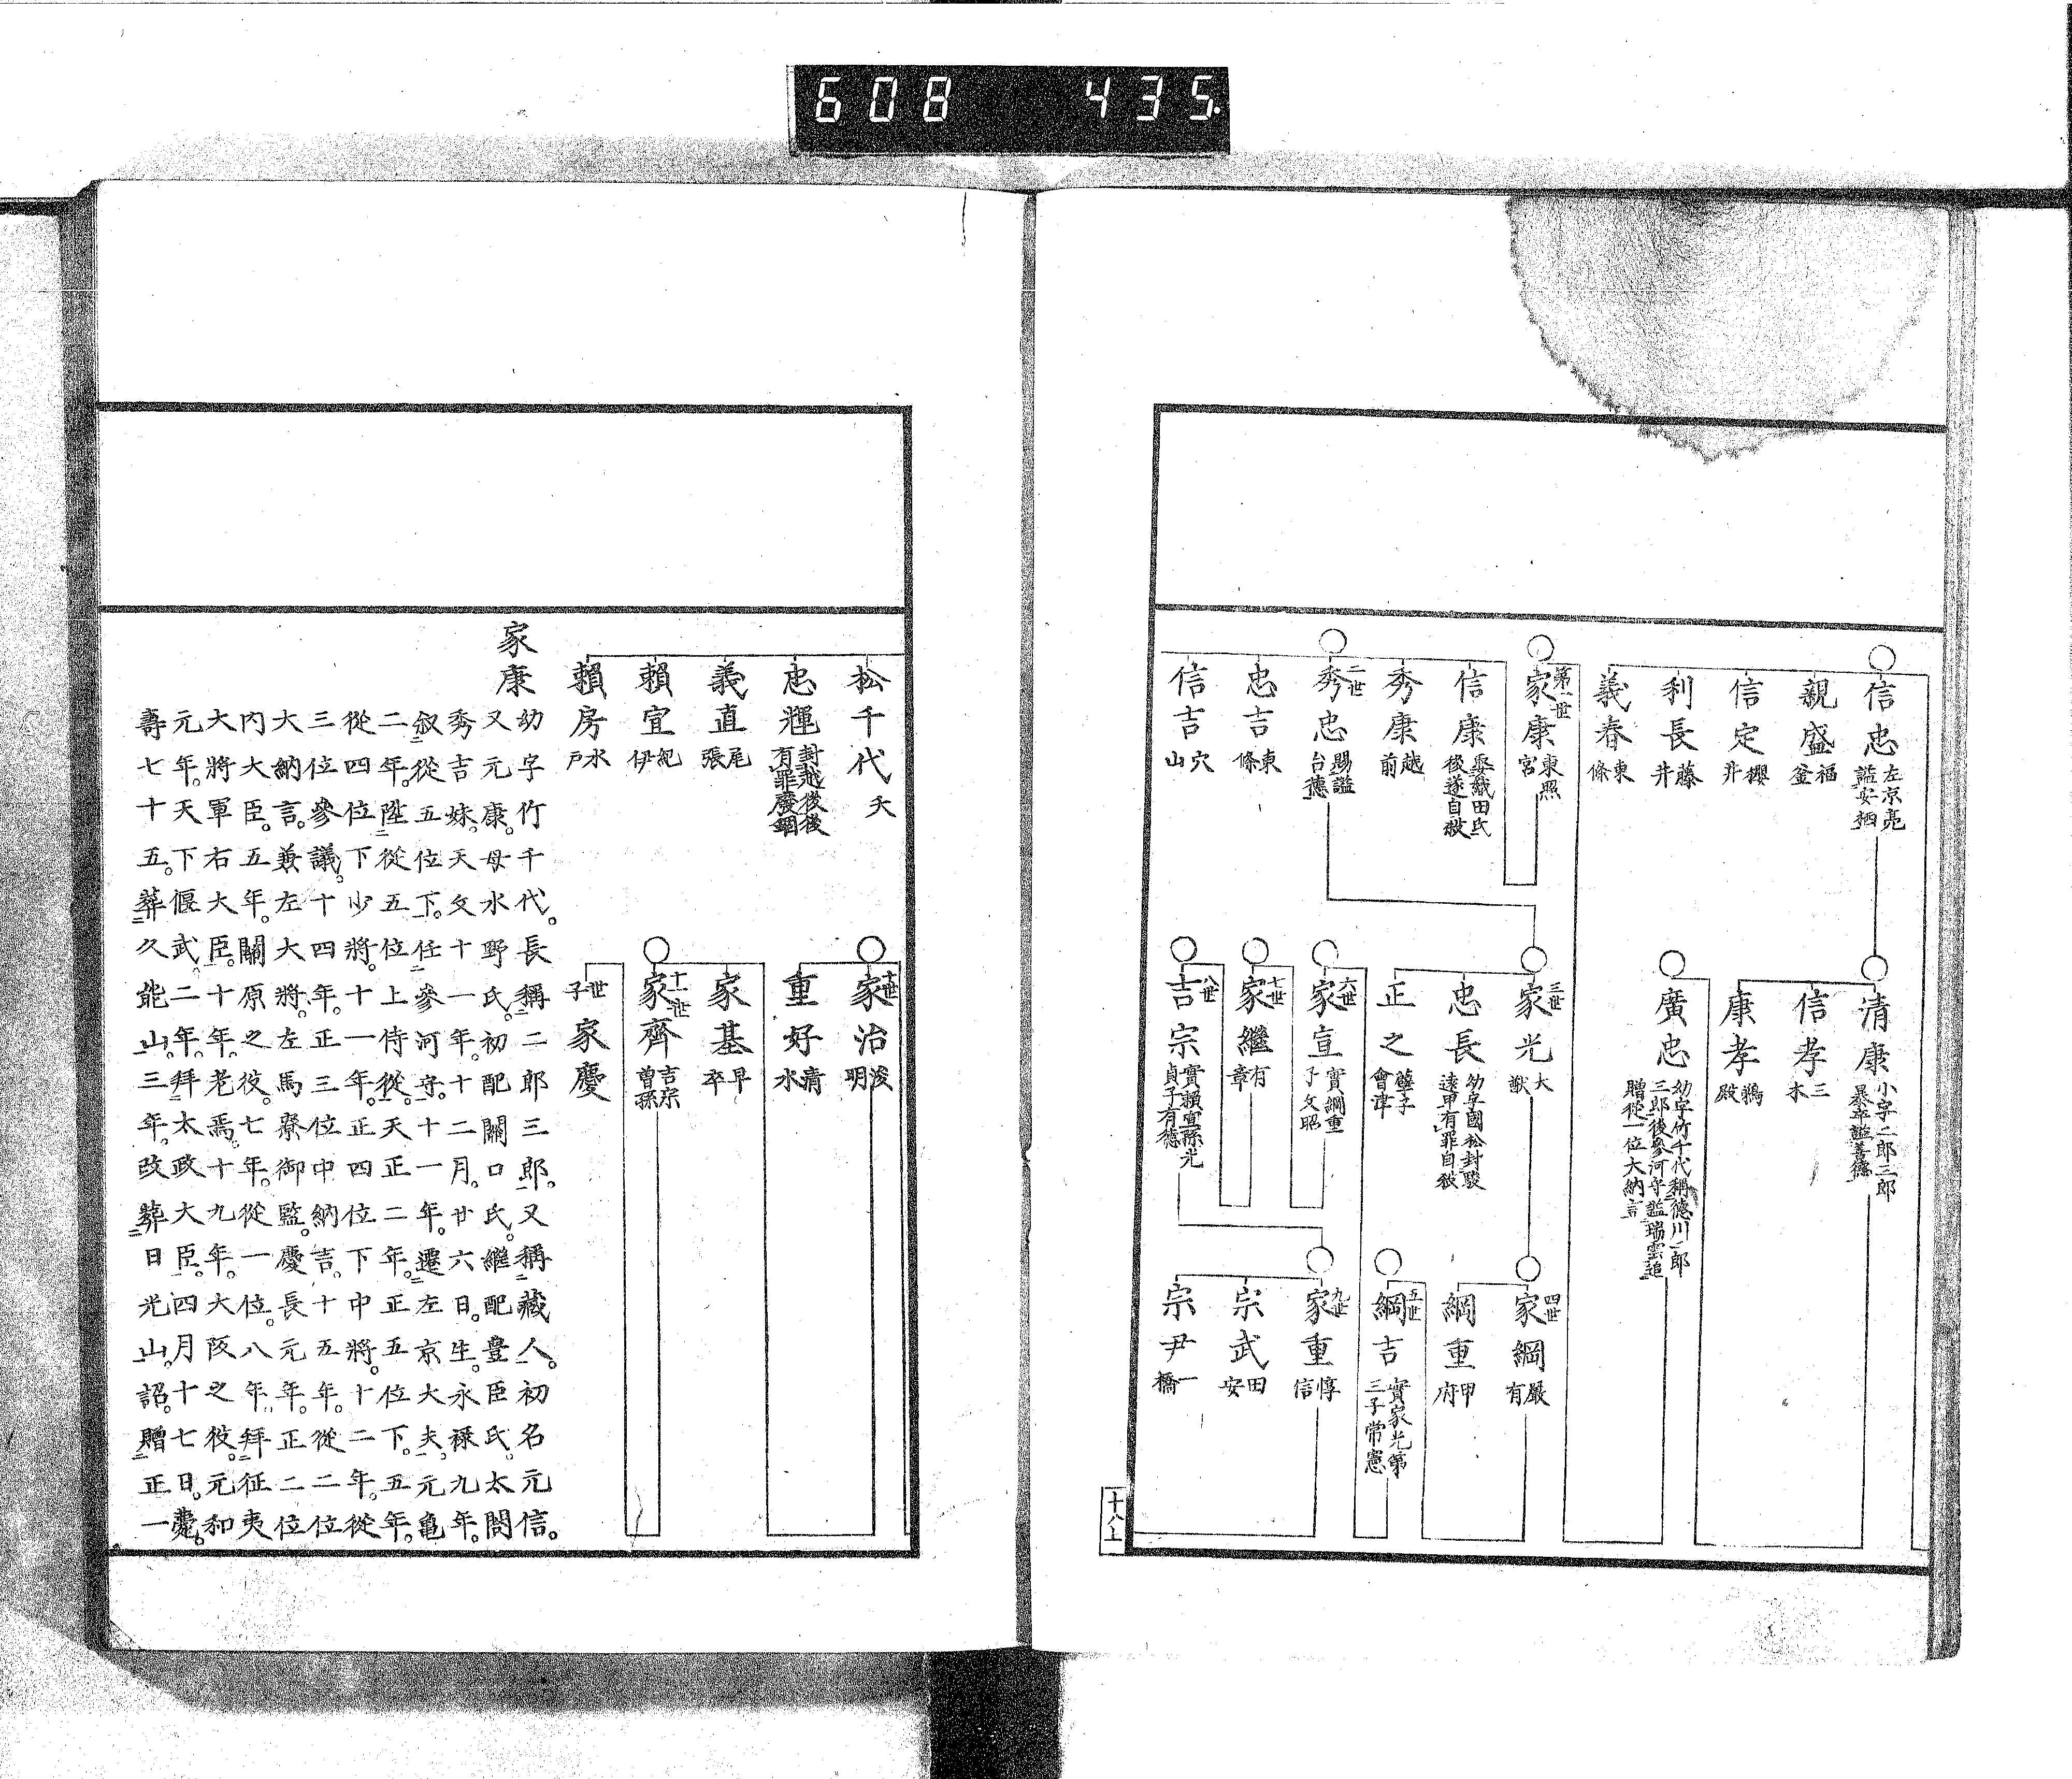 608 435
信忠 左京亮
謚安栖
親盛 福
釜
信定 櫻
井
利長 藤
井
義春 東
條
第一世
家康 東照
宮
信康 娶織田氏
後遂自殺
秀康 越
前
二世
秀忠 賜謚
台德
忠吉 東
條
信吉 穴
山
清康 小字二郎三郎
暴卒謚善德
信孝 三
木
康孝 鵜
殿
廣忠 幼字竹千代稱德川二郎
三郎後參河守謚瑞雲追
贈從一位大納言
三世
家光 大
猷
忠長 幼字國松封駿
遠甲有罪自殺
正之 孽子
會津
六世
家宣 實綱重
子文昭
七世
家繼 有
章
八世
吉宗 實賴宣孫光
貞子有德
四世
家綱 嚴
有
綱重 甲
府
五世
綱吉 實家光第
三子常憲
九世
家重 惇
信
宗武 田
安
宗尹 一
橋
十八上
松千代 夭
忠輝 封越後後
有罪廢錮
義直 尾
張
賴宣 紀
伊
賴房 水
戶
十世
家治 浚
明
重好 清
水
家基 早
卒
十一世
家齊 吉宗
曾孫
世子
家慶
家康
幼字竹千代。長稱二郎三郎。又稱藏人。初名元信。
又元康。母水野氏。初配關口氏。繼配豐臣氏。太閤
秀吉妹。天文十一年。十二月。廿六日。生。永祿九年。
敘從五位下。任參河守。十一年。遷左京大夫。元亀
二年。陞從五位上侍從。天正二年。正五位下。五年。
從四位下少將。十一年。正四位下中將。十二年。從
三位參議。十四年。正三位中納言。十五年。從二位
大納言。兼左大將。左馬寮御監。慶長元年。正二位
內大臣。五年。關原之役。七年。從一位。八年。拜征夷
大將軍右大臣。十年。老焉。十九年。大阪之役。元和
元年。天下偃武。二年。拜太政大臣。四月十七日。薨。
壽七十五。葬久能山。三年。改葬日光山。詔。贈正一